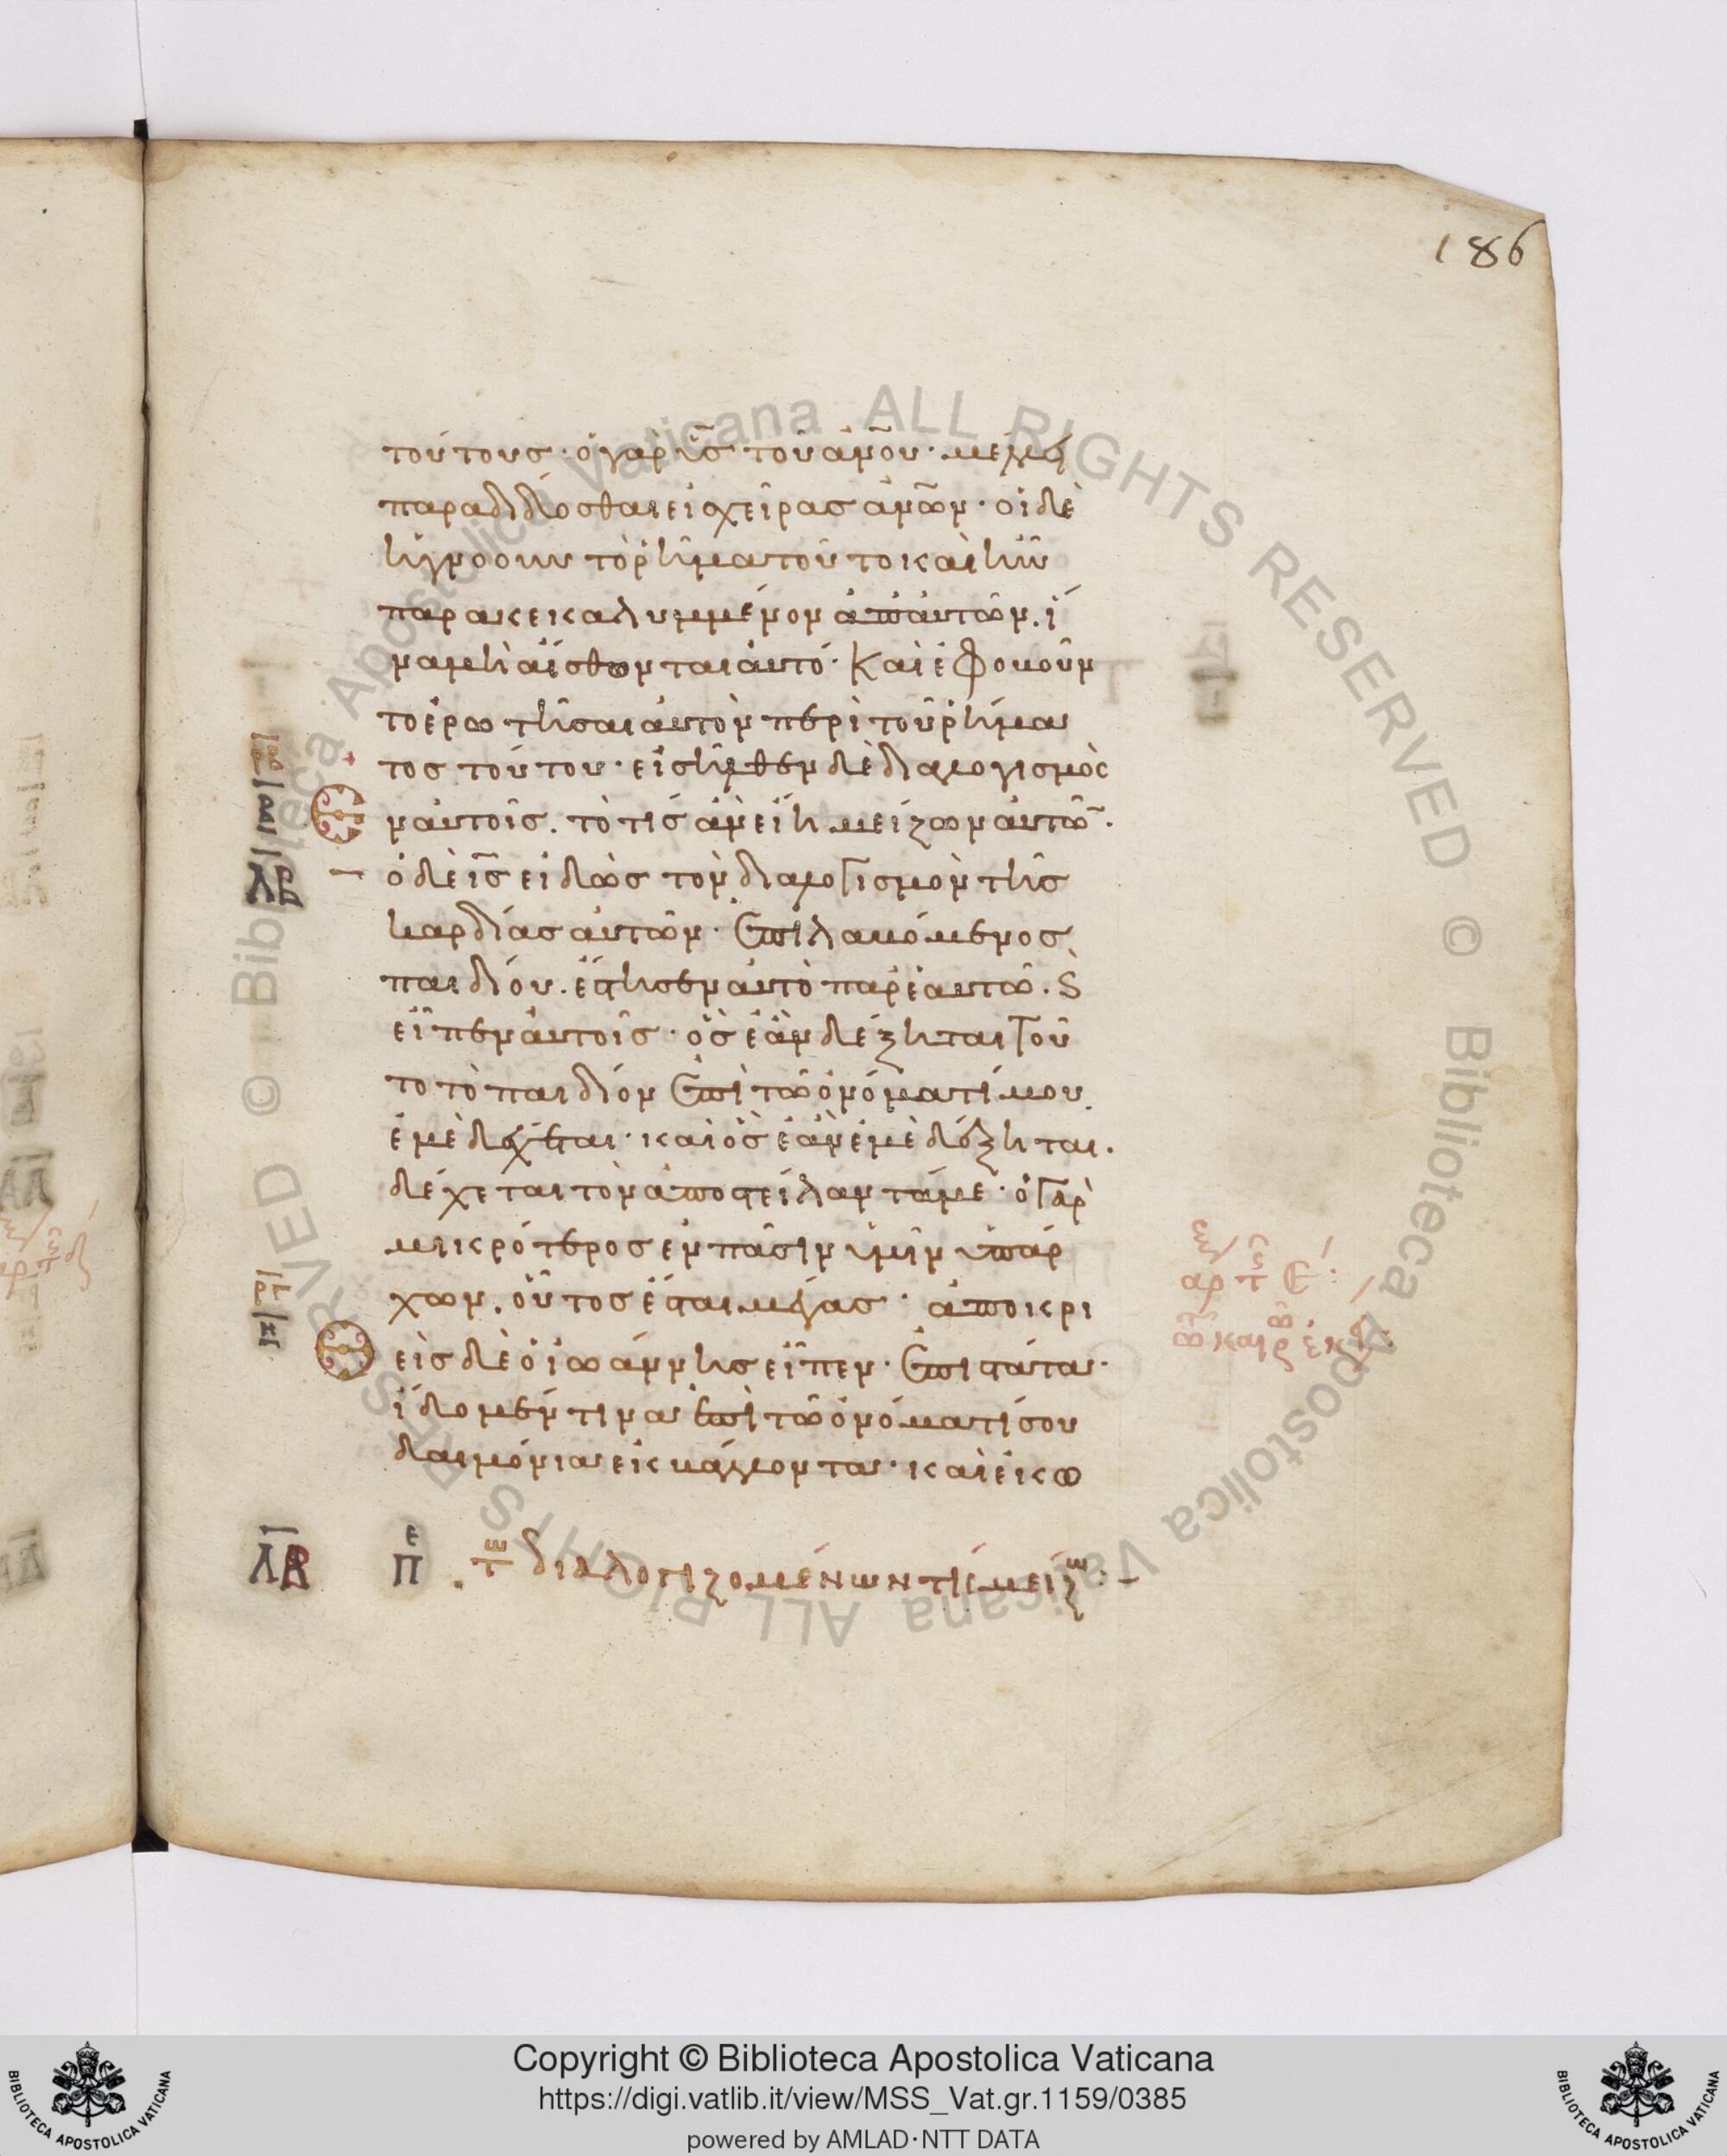 186
τούτους· ὁ γὰρ υ̅ς̅ τοῦ ἀν̅ο̅υ· μέλλει
παραδίδοσθαι εἰ χεῖρας ἀν̅ω̅ν· οἱ δὲ
ἠγνόουν τὸ ῥῆμα τοῦτο καὶ ἦν
παρακεκαλυμμένον ἀπ' αὐτῶν. ἵ
να μὴ αἴσθωνται αὐτό· Καὶ ἐφοβοῦν
το ἐρωτῆσαι αὐτὸν περὶ τοῦ ῥήμα
τος τούτου· εἰσῆλθεν δὲ διαλογισμὸς
ἐν αὐτοῖς. τὸ τίς ἂν εἴη μείζων αὐτῶν·
ὁ δὲ ι̅ς̅ εἰδὼς τὸν διαλογισμὸν τῆς
καρδίας αὐτῶν· ἐπιλαβόμενος
παιδίου. ἔστησεν αὐτὸ παρ' ἑαυτῶ. ϗ
εἶπεν αὐτοῖς· ὃς ἐὰν δέξηται τοῦ
το τὸ παιδίον ἐπὶ τῶ ὀνόματί μου.
ἐμὲ δέχεται· καὶ ὃς ἐὰν ἐμὲ δέξηται.
δέχεται τὸν ἀποστείλαντά με· ὁ γὰρ
μικρότερος ἐν πᾶσιν ὑμῖν ὑπάρ
χων. οὗτος ἔσται μέγας· ἀποκρι
θεὶς δὲ ὁ ἰωάννης εἶπεν· ἐπιστάτα·
ἴδομέν τινα ἐπὶ τῶ ὀνόματί σου
δαιμόνια ἐκβάλλοντα· καὶ ἐκω
ΛΒ
ΛΒ πε τῶν διαλογιζομένων τίς μείζων:
Copyright © Biblioteca Apostolica Vaticana
https://digi.vatlib.it/view/MSS_Vat.gr.1159/0385
powered by AMLAD·NTT DATA
BIBLIOTECA APOSTOLICA VATICANA
BIBLIOTECA APOSTOLICA VATICANA
© Biblioteca Apostolica Vaticana ALL RIGHTS RESERVED
© Biblioteca Apostolica Vaticana ALL RIGHTS RESERVED